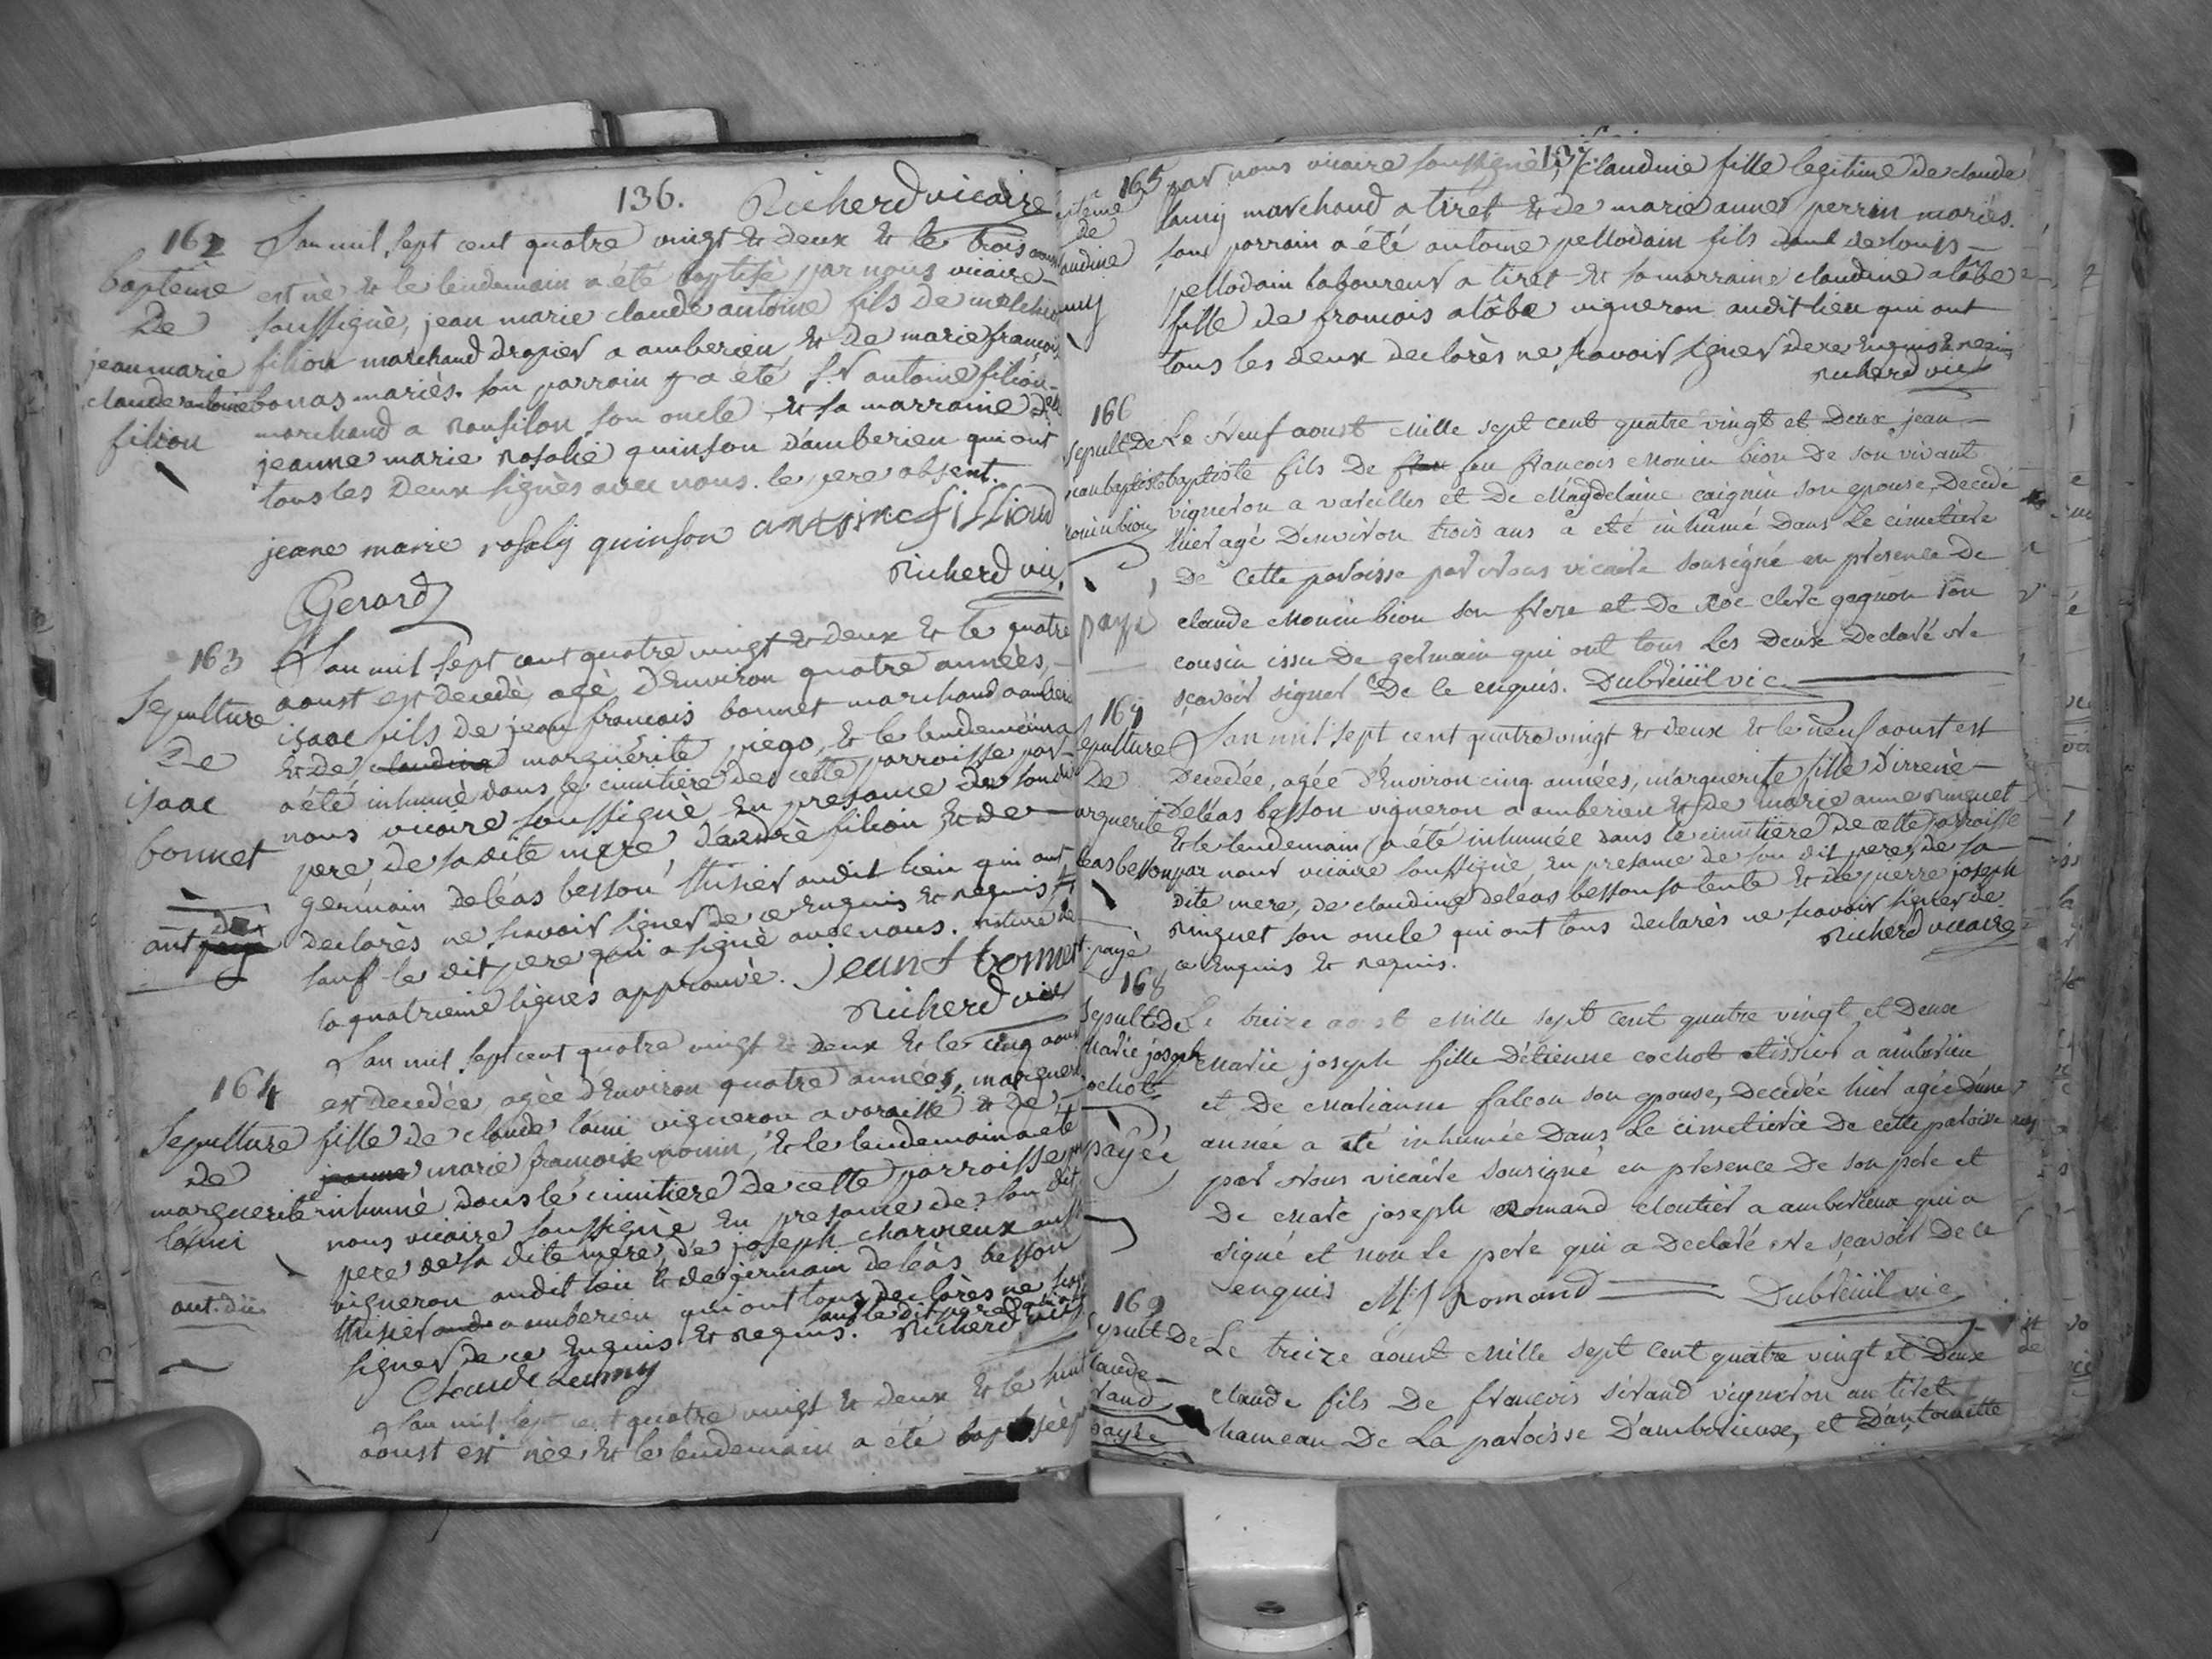 136.
Richerd vicaire
162
baptème
De
jean marie
claude antoine
filion
L'an mil sept cent quatre vingt & deux & le trois aoust
est nè & le lendemain a été baptisè par nous vicaire
soussignè, jean marie claude antoine fils de melchior
filion marchand drapier a amberieu, & de marie françoise
bonas mariès. son parrain y a été s.r antoine filion
marchand a son oncle & sa marraine d.lle
jeanne marie rosalie quinson d'amberieu qui ont
tous les deux signès avec nous. le pere absent.
jeane marie rosaly quinson antoine fillioud
Gerard
Richerd vic.
163
Sepulture
De
isaac
bonnet
L'an mil sept cent quatre vingt & deux & le quatre
aoust est decedè, agè d'Environ quatre années,
isaac fils de jean françois bonnet marchand a amberieu
& de claudine marguerite piego, & le lendemain a
a été inhumè dans le cimitiere de cette parroisse par
nous vicaire soussignè En presance de son dit
pere de sa dite mere, d'andrè filion & de
germain deléas besson tissier audit lieu qui ont
declarès ne scavoir signer de ce Enquis & requis
sauf le dit pere qui a signè avec nous. raturé de
la quatrieme lignes approuvè. jean f bonnet
Richerd vic
164
Sepulture
de
marguerite
lami
ant. dü
L'an mil sept cent quatre vingt & deux & le cinq aoust
est decedée, agée d'Environ quatre années, marguerite
fille de claude lami vigneron a vareille & de
jeanne marie françoise monin, & le lendemain a été
inhumè dans le cimitiere de cette parroisse par
nous vicaire soussignè En presance de son dit
pere de sa dite mere, de joseph charveux aussi
vigneron audit lieu & de germain deléas besson
tissier a amberieu qui ont tous declarès ne scav
signer de ce Enquis & requis. sauf le dit pere qui a
Richerd vic
Claude Lamy
L'an mil sept cent quatre vingt & deux & le huit
aoust est née & le lendemain a été baptisée
137.
165
de
par nous vicaire soussignè, claudine fille legitime de claude
lamy marchand a tiret & de marie anne perrin mariès.
son parrain a été antoine pellodain fils de louis
pellodain laboureur a tiret & sa marraine claudine alâbe
fille de francois alâbe vigneron audit lieu qui ont
tous les deux declarès ne scavoir signer de ce Enquis & requis
Richerd vic
166
Sepult. De
jean baptiste
monin bion
payé
Le Neuf aoust Mille sept cent quatre vingt et Deux jean
baptiste fils De feu francois Monin bion De son vivant
vigneron a vareilles et De Magdelaine caignin son epouse, Decedé
hier agé D'environ trois ans a eté inhumé Dans Le cimetiere
De Cette paroisse par Nous vicaire sousigné en presence De
claude Monin bion son frere et De Roc clerc gagnon son
cousin issu De germain qui ont tous Les Deux Declaré Ne
sçavoir signer De ce enquis. Dubreüil vic
167
Sepulture
De
payé
L'an mil sept cent quatre vingt & deux & le neuf aoust est
Decedée, agée d'Environ cinq années, marguerite fille d'irrenè
Deléas besson vigneron a amberieu & de marie anne ringuet
& le lendemain a été inhumée dans le cimitiere de cette parroisse
par nous vicaire soussignè, En presance de son dit pere, de sa
dite mere, de claudine deleas besson sa tente & de pierre joseph
Ringuet son oncle qui ont tous declarès ne scavoir signer de
ce Enquis & requis.
Richerd vicaire
168
Sepult. De
Marie joseph
cochot
payée
Le treize aoust Mille sept Cent quatre vingt et Deux
Marie joseph fille D'etienne cochot tissier a amberieu
et De Marianne falcon son epouse, Decedée hier agée D'une
année a eté inhumée Dans Le cimetiere De cette paroisse
par Nous vicaire sousigné en presence De son pere et
De Marc joseph Romand cloutier a amberieux qui a
signé et non Le pere qui a Declaré Ne sçavoir De ce
enquis M J Romand Dubreüil vic
169
Sepult De
claude
payée
Le treize aoust Mille sept Cent quatre vingt et Deux
claude fils De francois sirand vigneron au tiret
hameau De La paroisse D'amberieux, et D'antoinette